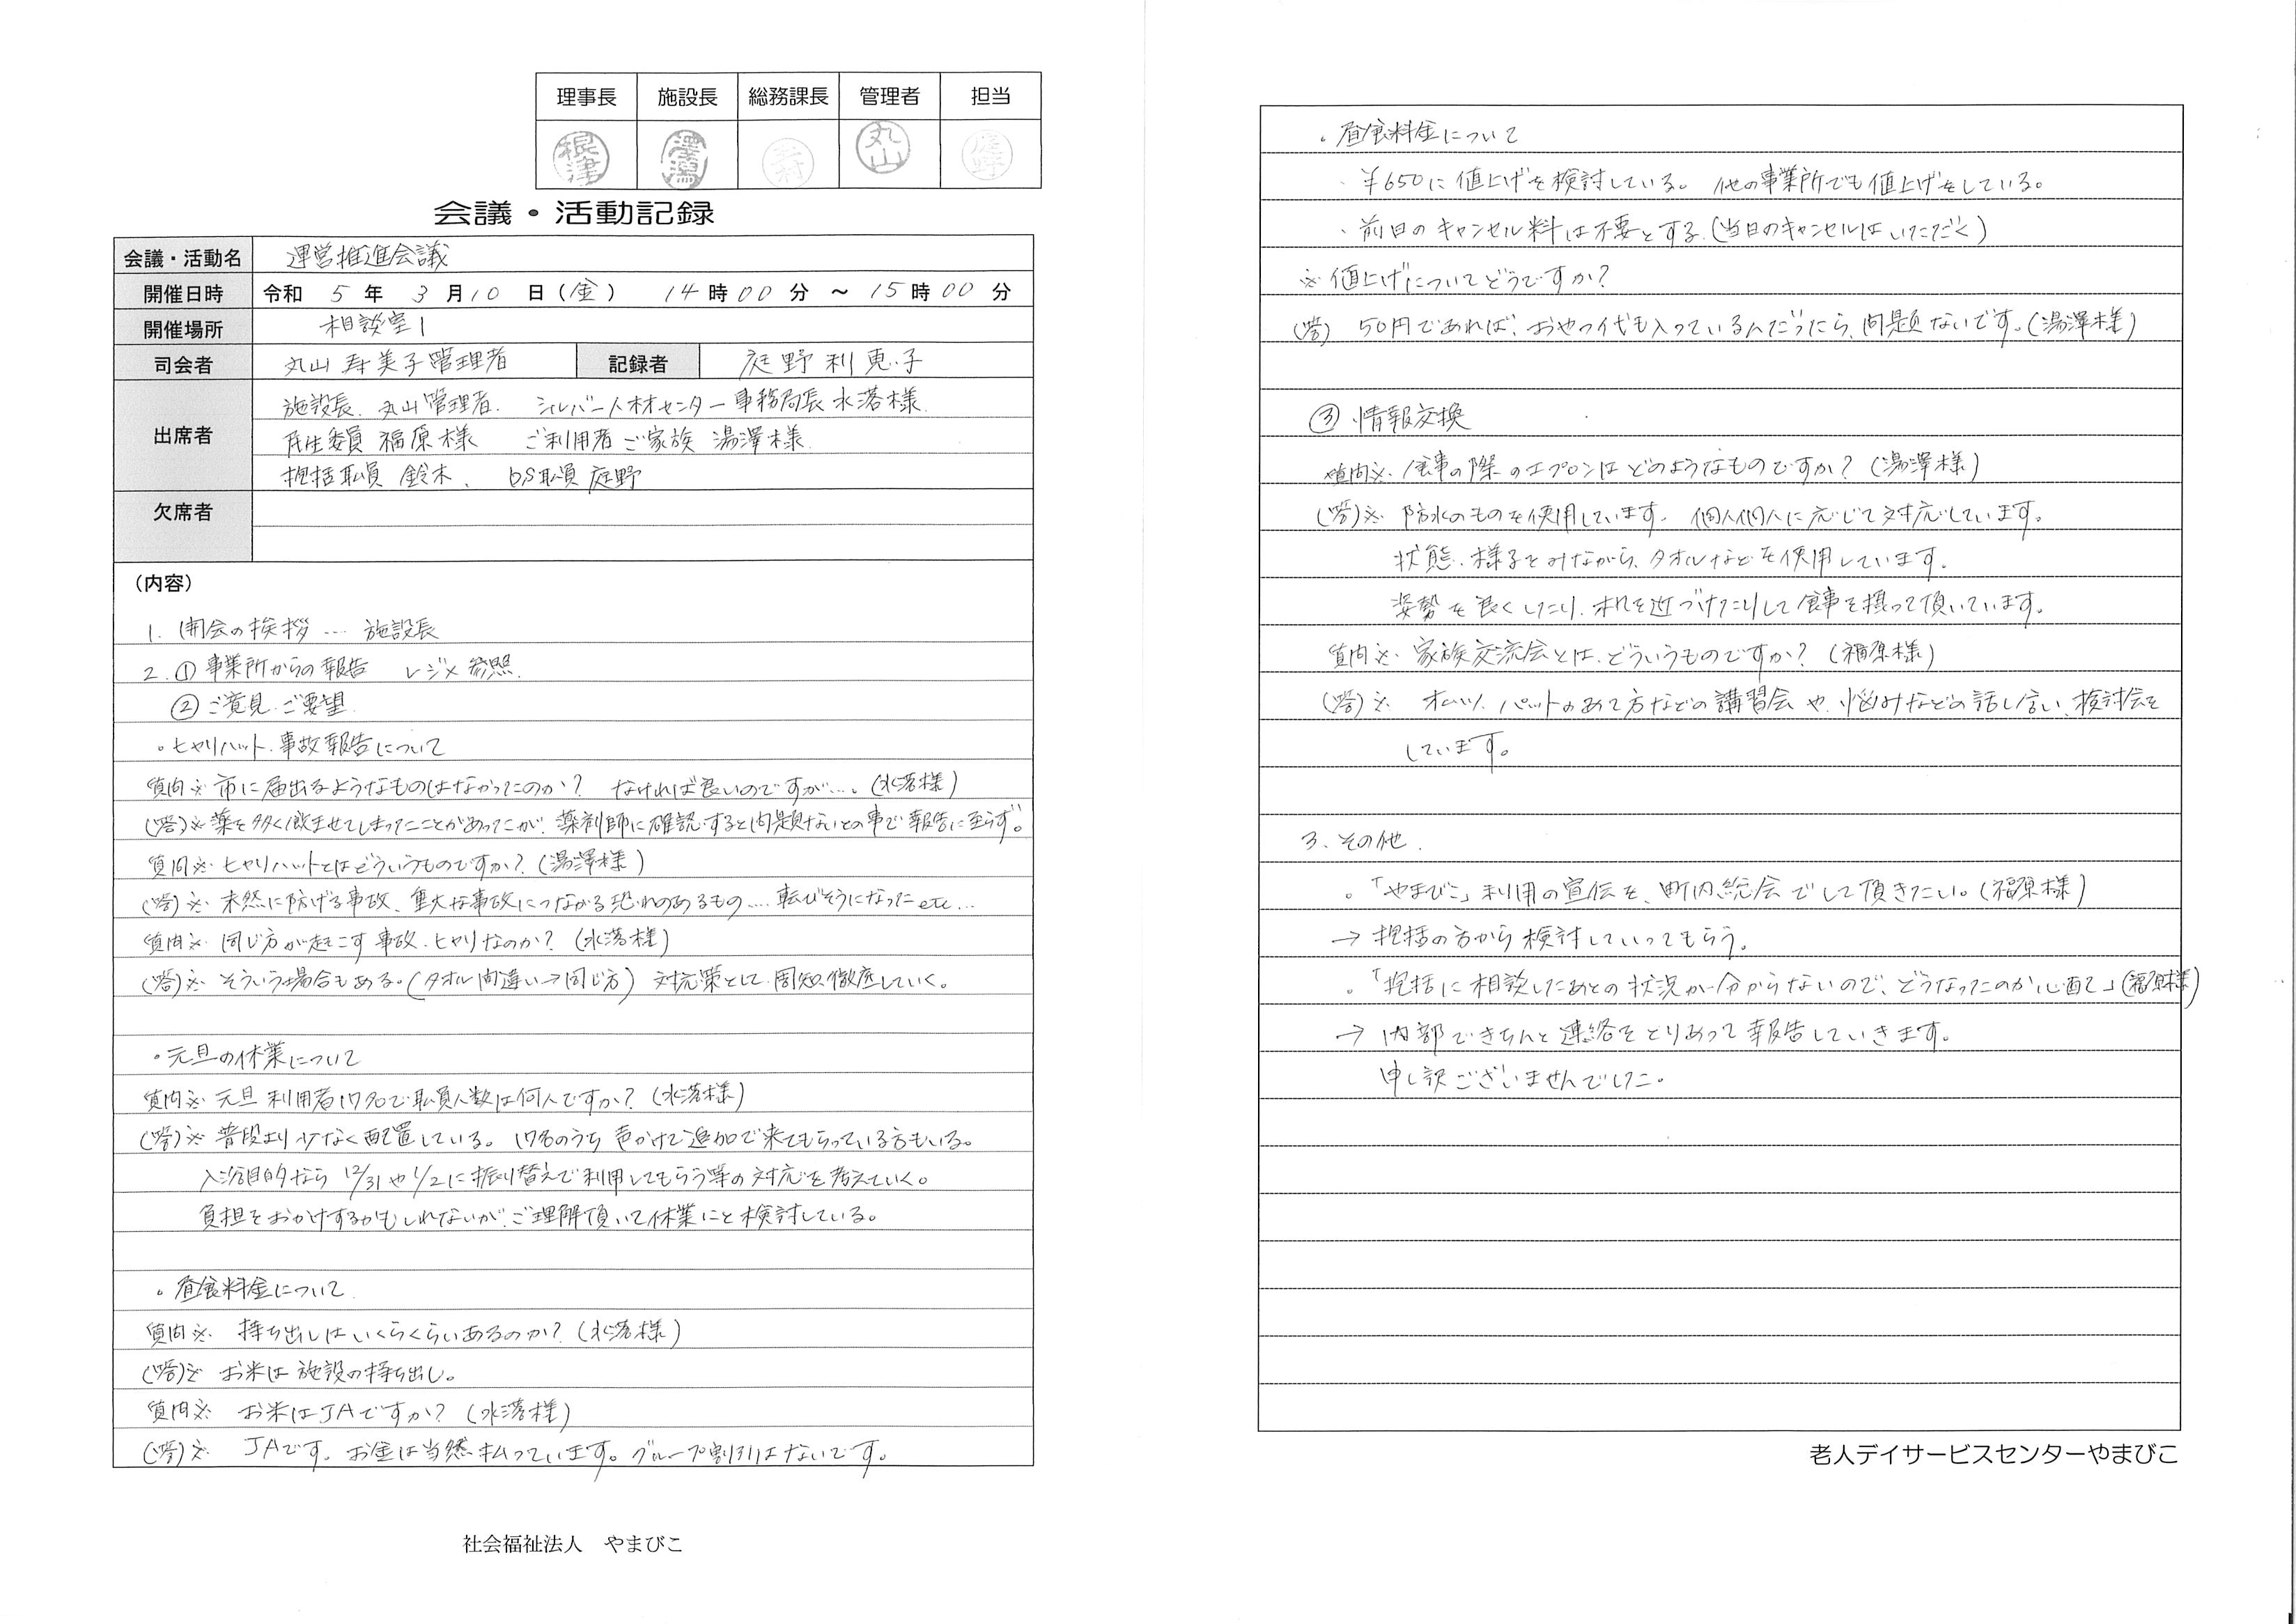 理事長 施設長 総務課長 管理者 担当
根津 丸山
会議・活動記録
会議・活動名 運営推進会議
開催日時 令和 5 年 3 月 10 日 (金) 14 時 00 分 ～ 15 時 00 分
開催場所 相談室1
司会者 丸山 寿美子管理者 記録者 庭野 利恵子
出席者 施設長、丸山管理者、シルバー人材センター事務局長 水落様
民生委員 福原様 ご利用者ご家族 湯澤様
包括職員 鈴木、DS職員 庭野
欠席者
(内容)
1. 開会の挨拶 … 施設長
2. ①事業所からの報告 レジメ参照
②ご意見、ご要望
。ヒヤリハット、事故報告について
質問※ 市に届出るようなものはなかったのか？ なければ良いのですが…。(水落様)
(答)※ 薬を多く飲ませてしまったことがあったが、薬剤師に確認すると問題ないとの事で報告に至らず。
質問※ ヒヤリハットとはどういうものですか？(湯澤様)
(答)※ 未然に防げる事故、重大な事故につながる恐れのあるもの…. 転びそうになったetc…
質問※ 同じ方が起こす事故、ヒヤリなのか？(水落様)
(答)※ そういう場合もある。(タオル間違い→同じ方) 対応策として周知、徹底していく。
・元旦の休業について
質問※ 元旦 利用者17名で職員人数は何人ですか？(水落様)
(答)※ 普段より少なく配置している。17名のうち声かけで追加で来てもらっている方もいる。
入浴目的なら12/31や1/2に振り替えで利用してもらう等の対応を考えていく。
負担をおかけするかもしれないが、ご理解頂いて休業にと検討している。
。昼食料金について
質問※ 持ち出しはいくらくらいあるのか？(水落様)
(答)※ お米は施設の持ち出し。
質問※ お米はJAですか？(水落様)
(答)※ JAです。お金は当然払っています。グループ割引はないです。
社会福祉法人 やまびこ
。昼食料金について
、¥650に値上げを検討している。他の事業所でも値上げをしている。
、前日のキャンセル料は不要とする。(当日のキャンセルはいただく)
※ 値上げについてどうですか？
(答) 50円であれば、おやつ代も入っているんだったら、問題ないです。(湯澤様)
③ 情報交換
質問※ 食事の際のエプロンはどのようなものですか？(湯澤様)
(答)※ 防水のものを使用しています。個人個人に応じて対応しています。
状態、様子をみながら、タオルなどを使用しています。
姿勢を良くしたり、机を近づけたりして食事を摂って頂いています。
質問※ 家族交流会とは、どういうものですか？(福原様)
(答)※ オムツ、パットのあて方などの講習会や、悩みなどの話し合い、検討会を
しています。
3. その他
。「やまびこ」利用の宣伝を、町内総会でして頂きたい。(福原様)
→ 包括の方から検討していってもらう。
。「包括に相談したあとの状況が分からないので、どうなったのか心配で」(福原様)
→ 内部できちんと連絡をとりあって報告していきます。
申し訳ございませんでした。
老人デイサービスセンターやまびこ